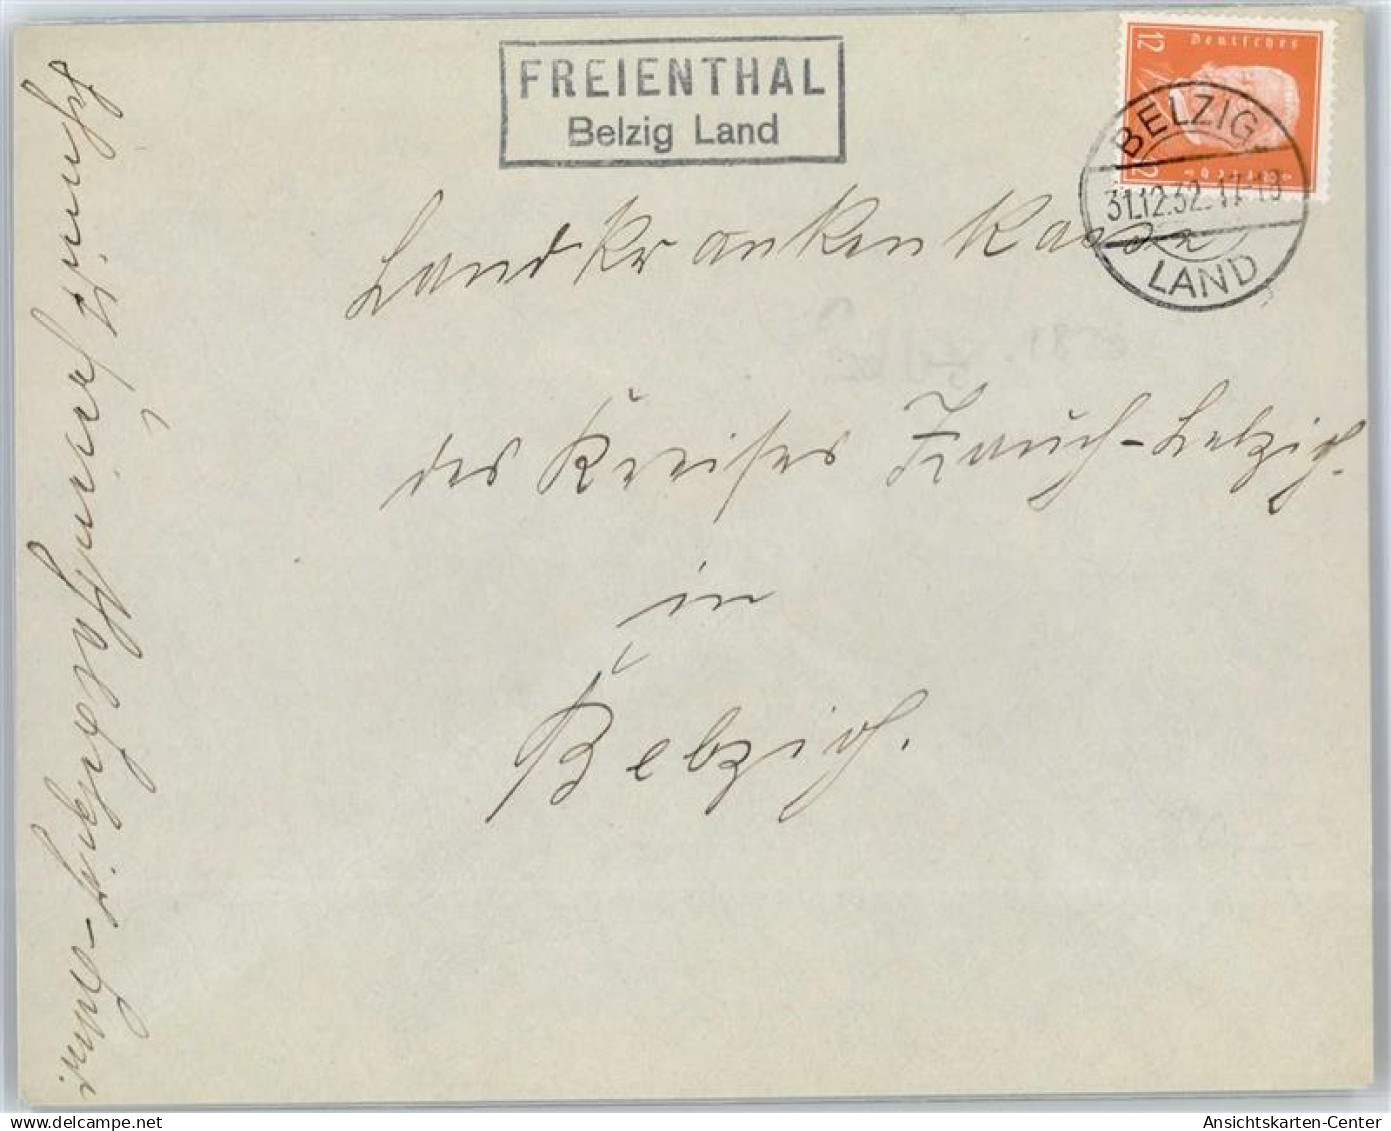 FREIENTHAL
Belzig Land
12
Deutsches
BELZIG
31.12.32.17-18
LAND
Landkrankenkasse
des Kreises Zauch-Belzig.
in
Belzig.
Ansichtskarten-Center